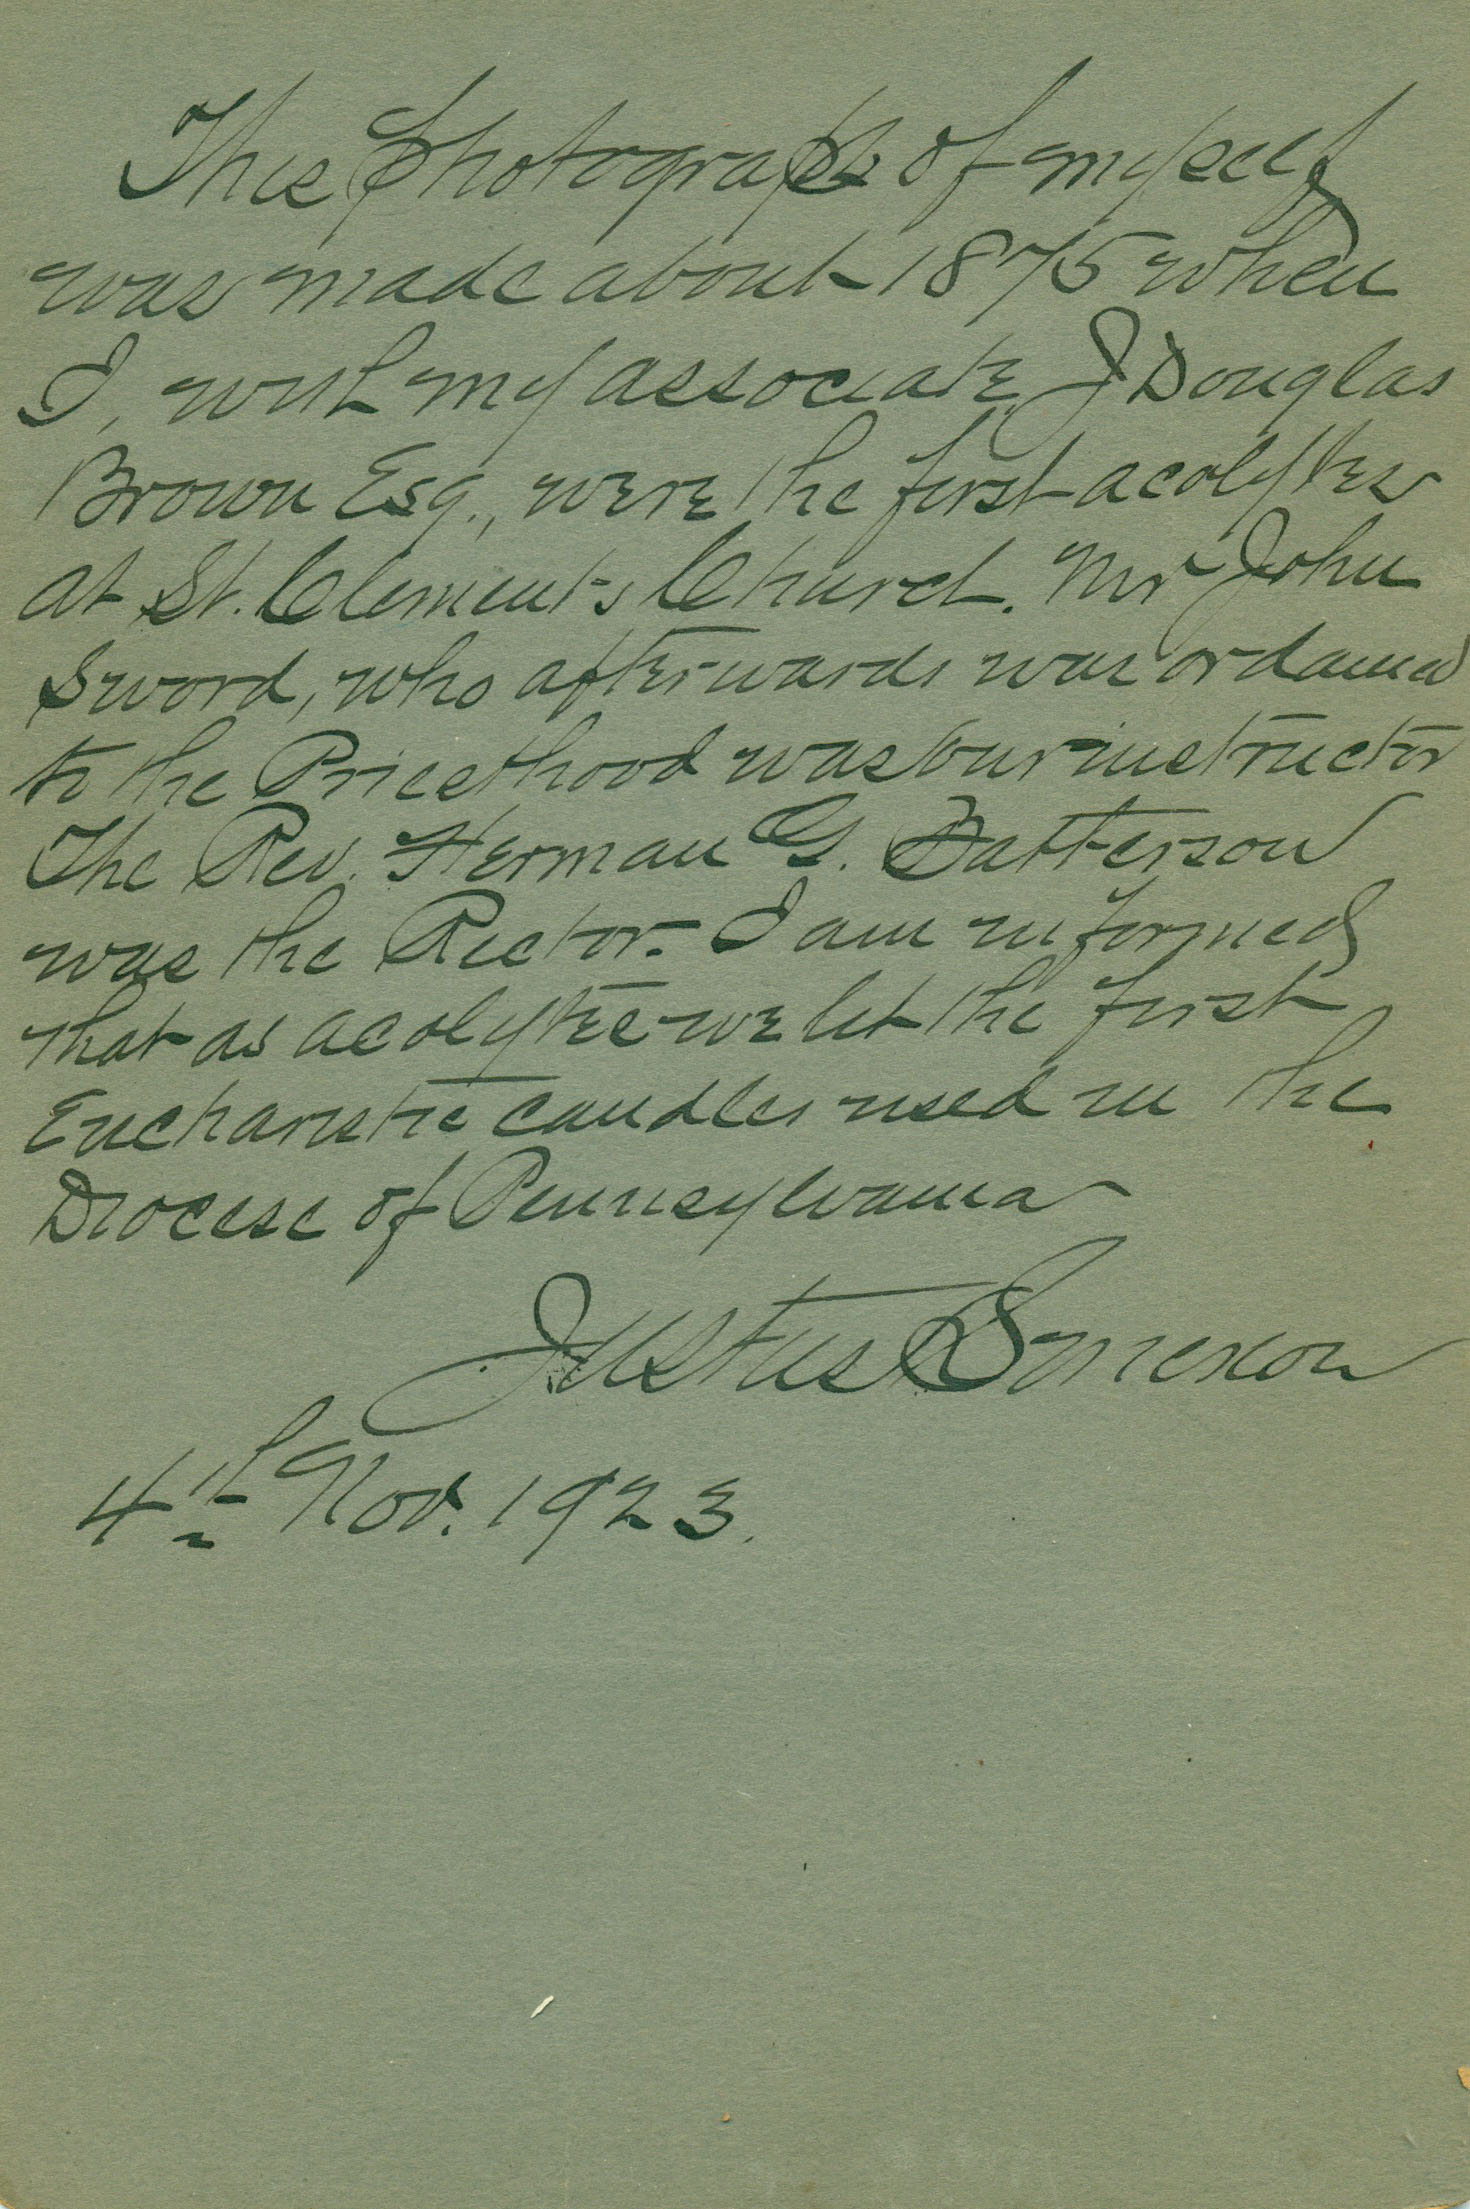 This photograph of myself
was made about 1875 when
I, with my associate J Douglas
Brown Esq., were the first acolytes
at St. Clement's Church. Mr John
Sword, who afterwards was ordained
to the Priesthood was our instructor
The Rev. Herman G. Batterson
was the Rector. I am informed
that as acolytes we lit the first
Eucharistic candles used in the
Diocese of Pennsylvania
Justus
4th Nov. 1923.